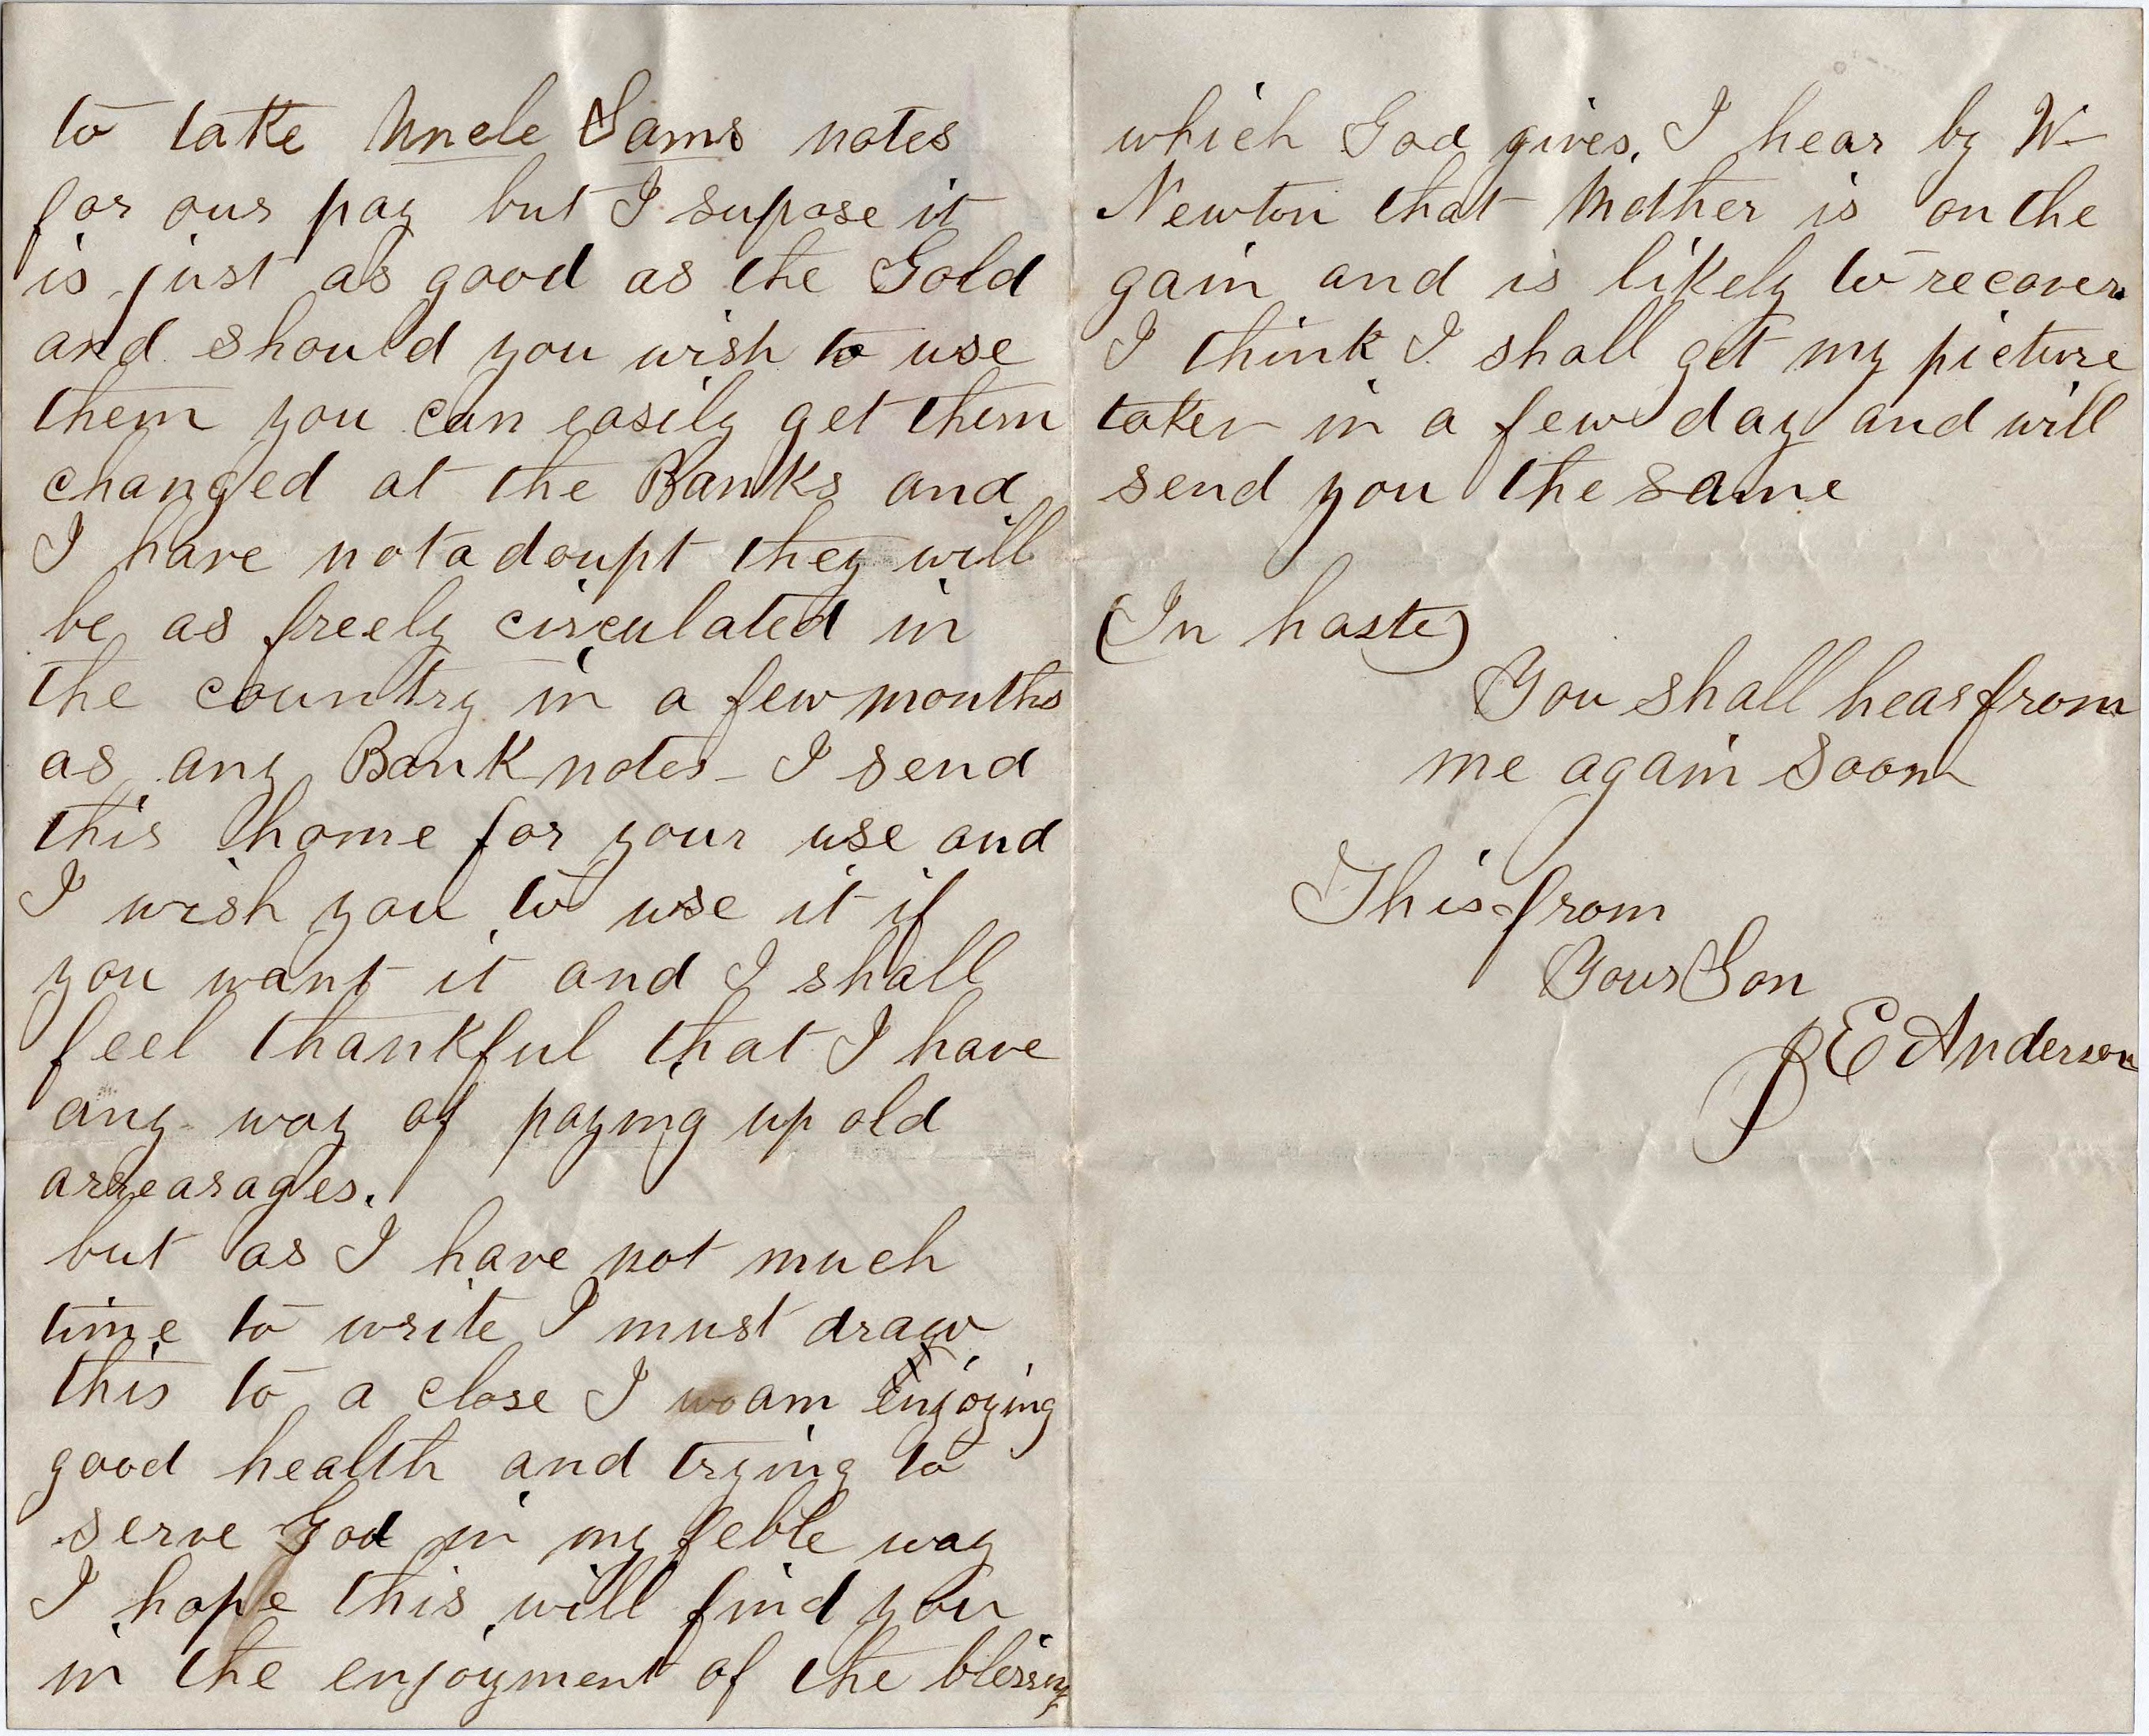 to take Uncle Sams notes
for our pay but I supose it
is just as good as the Gold
and should you wish to use
them you can easily get them
changed at the Banks and
I have not a doupt they will
be as freely circulated in
the country in a few months
as any Bank notes - I send
this home for your use and
I wish you to use it if
you want it and I shall
feel thankful that I have
any way of paying up old
arrearages.
but as I have not much
time to write I must draw
this to a close I am enjoying
good health and trying to
serve God in my feble way
I hope this will find you
in the enjoyment of the blessing
which God gives. I hear by W-
Newton that Mother is on the
gain and is likely to recover.
I think I shall get my picture
taken in a few day and will
send you the same
(In haste)
You shall hear from
me again soon
This from
Your Son
J E Anderson